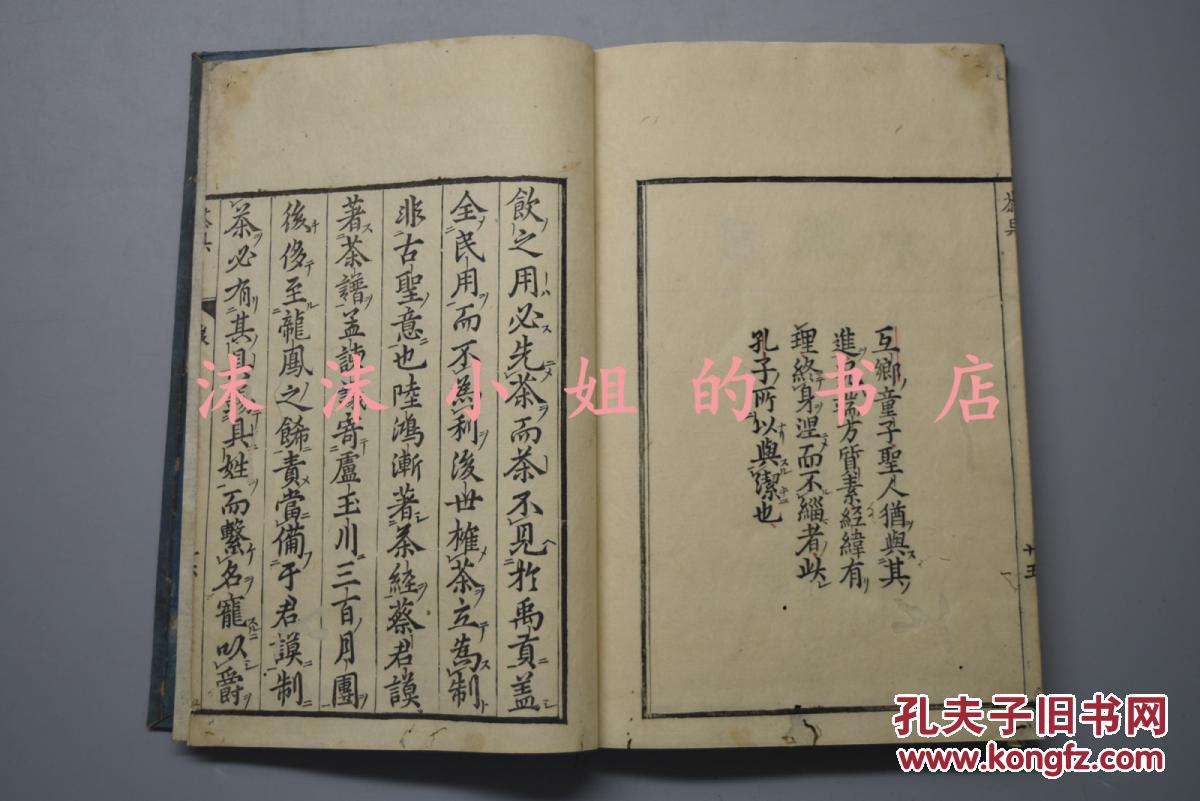 互鄉童子聖人猶與其
進况端方質素經緯有
理終身涅而不緇者此
孔子所以與潔也
茶具
十五
飲之用必先茶而茶不見於禹貢蓋
全民用而不為利後世榷茶立為制
非古聖意也陸鴻漸著茶經蔡君謨
著茶譜孟諫議寄盧玉川三百月團
後侈至龍鳳之餙責當備于君謨制
茶必有其具錫具姓而繫名寵以爵
沫沫小姐的书店
孔夫子旧书网
www.kongfz.com